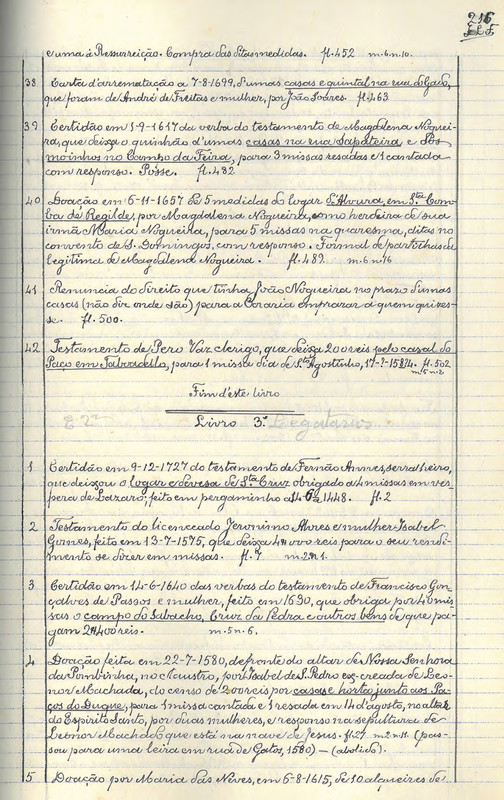 216
e uma á Ressurreição. Compra das ditas medidas. fl. 452 m. 6. n. 10.
38 Carta d'arrematação a 7-8-1699, d'umas casas e quintal na rua do Gado,
que foram de André de Freitas e mulher, por João Soares. fl. 463.
39 Certidão em 1-9-1617 da verba do testamento de Magdalena Noguei-
ra, que deixa o quinhão d'umas casas na rua Sapateira e dos
moinhos no Campo da Feira, para 3 missas resadas e 1 cantada
com responso. Posse. fl. 482.
40 Doação em 6-11-1657 de 5 medidas do logar d'Moura, em Sta Com-
ba de Regilde, por Magdalena Nogueira, como herdeira de sua
irmã Maria Nogueira, para 5 missas na quaresma, ditas no
convento de S. Domingos, com responso. Formal de partilhas da
legitima de Magdalena Nogueira. fl. 489. m. 6 n. 16
41 Renuncia do direito que tinha João Nogueira no prazo d'umas
casas (não diz onde são) para a Coraria emprazar a quem quizes-
se. fl. 500.
42 Testamento de Pero Vaz clerigo, que deixa 200 reis pelo casal do
Paço em Taboadello, para 1 missa dia de Sto Agostinho, fl. 502
m. 5 n. 2
Fim d'este livro
Livro 3.º Legatarios
1 Certidão em 9-12-1727 do testamento de Fernão Annes, serralheiro,
que deixou o logar e devesa de Sta Cruz obrigado a 4 missas em ves-
pera de Lazaro; feito em pergaminho a 1448. fl. 2
2 Testamento do licenceado Jeronimo Alvres e mulher Isabel
Gomes, feito em 13-7-1575, que deixa reis para o seu rendi-
mento se dizer em missas. fl. 7 m. 2 n. 1.
3 Certidão em 14-6-1640 das verbas do testamento de Francisco Gon-
çalves de Passos e mulher, feito em 1630, que obriga por 40 mis-
sas o campo do Sabacho, Cruz da Pedra e outros bens de que pa-
gam 2400 reis. m. 5 n. 6.
4 Doação feita em 22-7-1580, defronte do altar de Nossa Senhora
da Pombinha, no claustro, por Isabel de S. Pedro ex-creada de Leo-
nor Machada, do censo de 200 reis por casas e horta junto aos Pa-
ços do Duque, para 1 missa cantada e 1 resada em 14 d'agosto, no altar
do Espirito Santo, por duas mulheres, e responso na sepultura de
Leonor Machado que está na nave de Jesus. fl. 27 m. 2 n. 11. (pas-
sou para uma leira em rua de Gatos, 1580) — (abolido).
5 Doação por Maria das Neves, em 6-8-1615, de 10 alqueires de